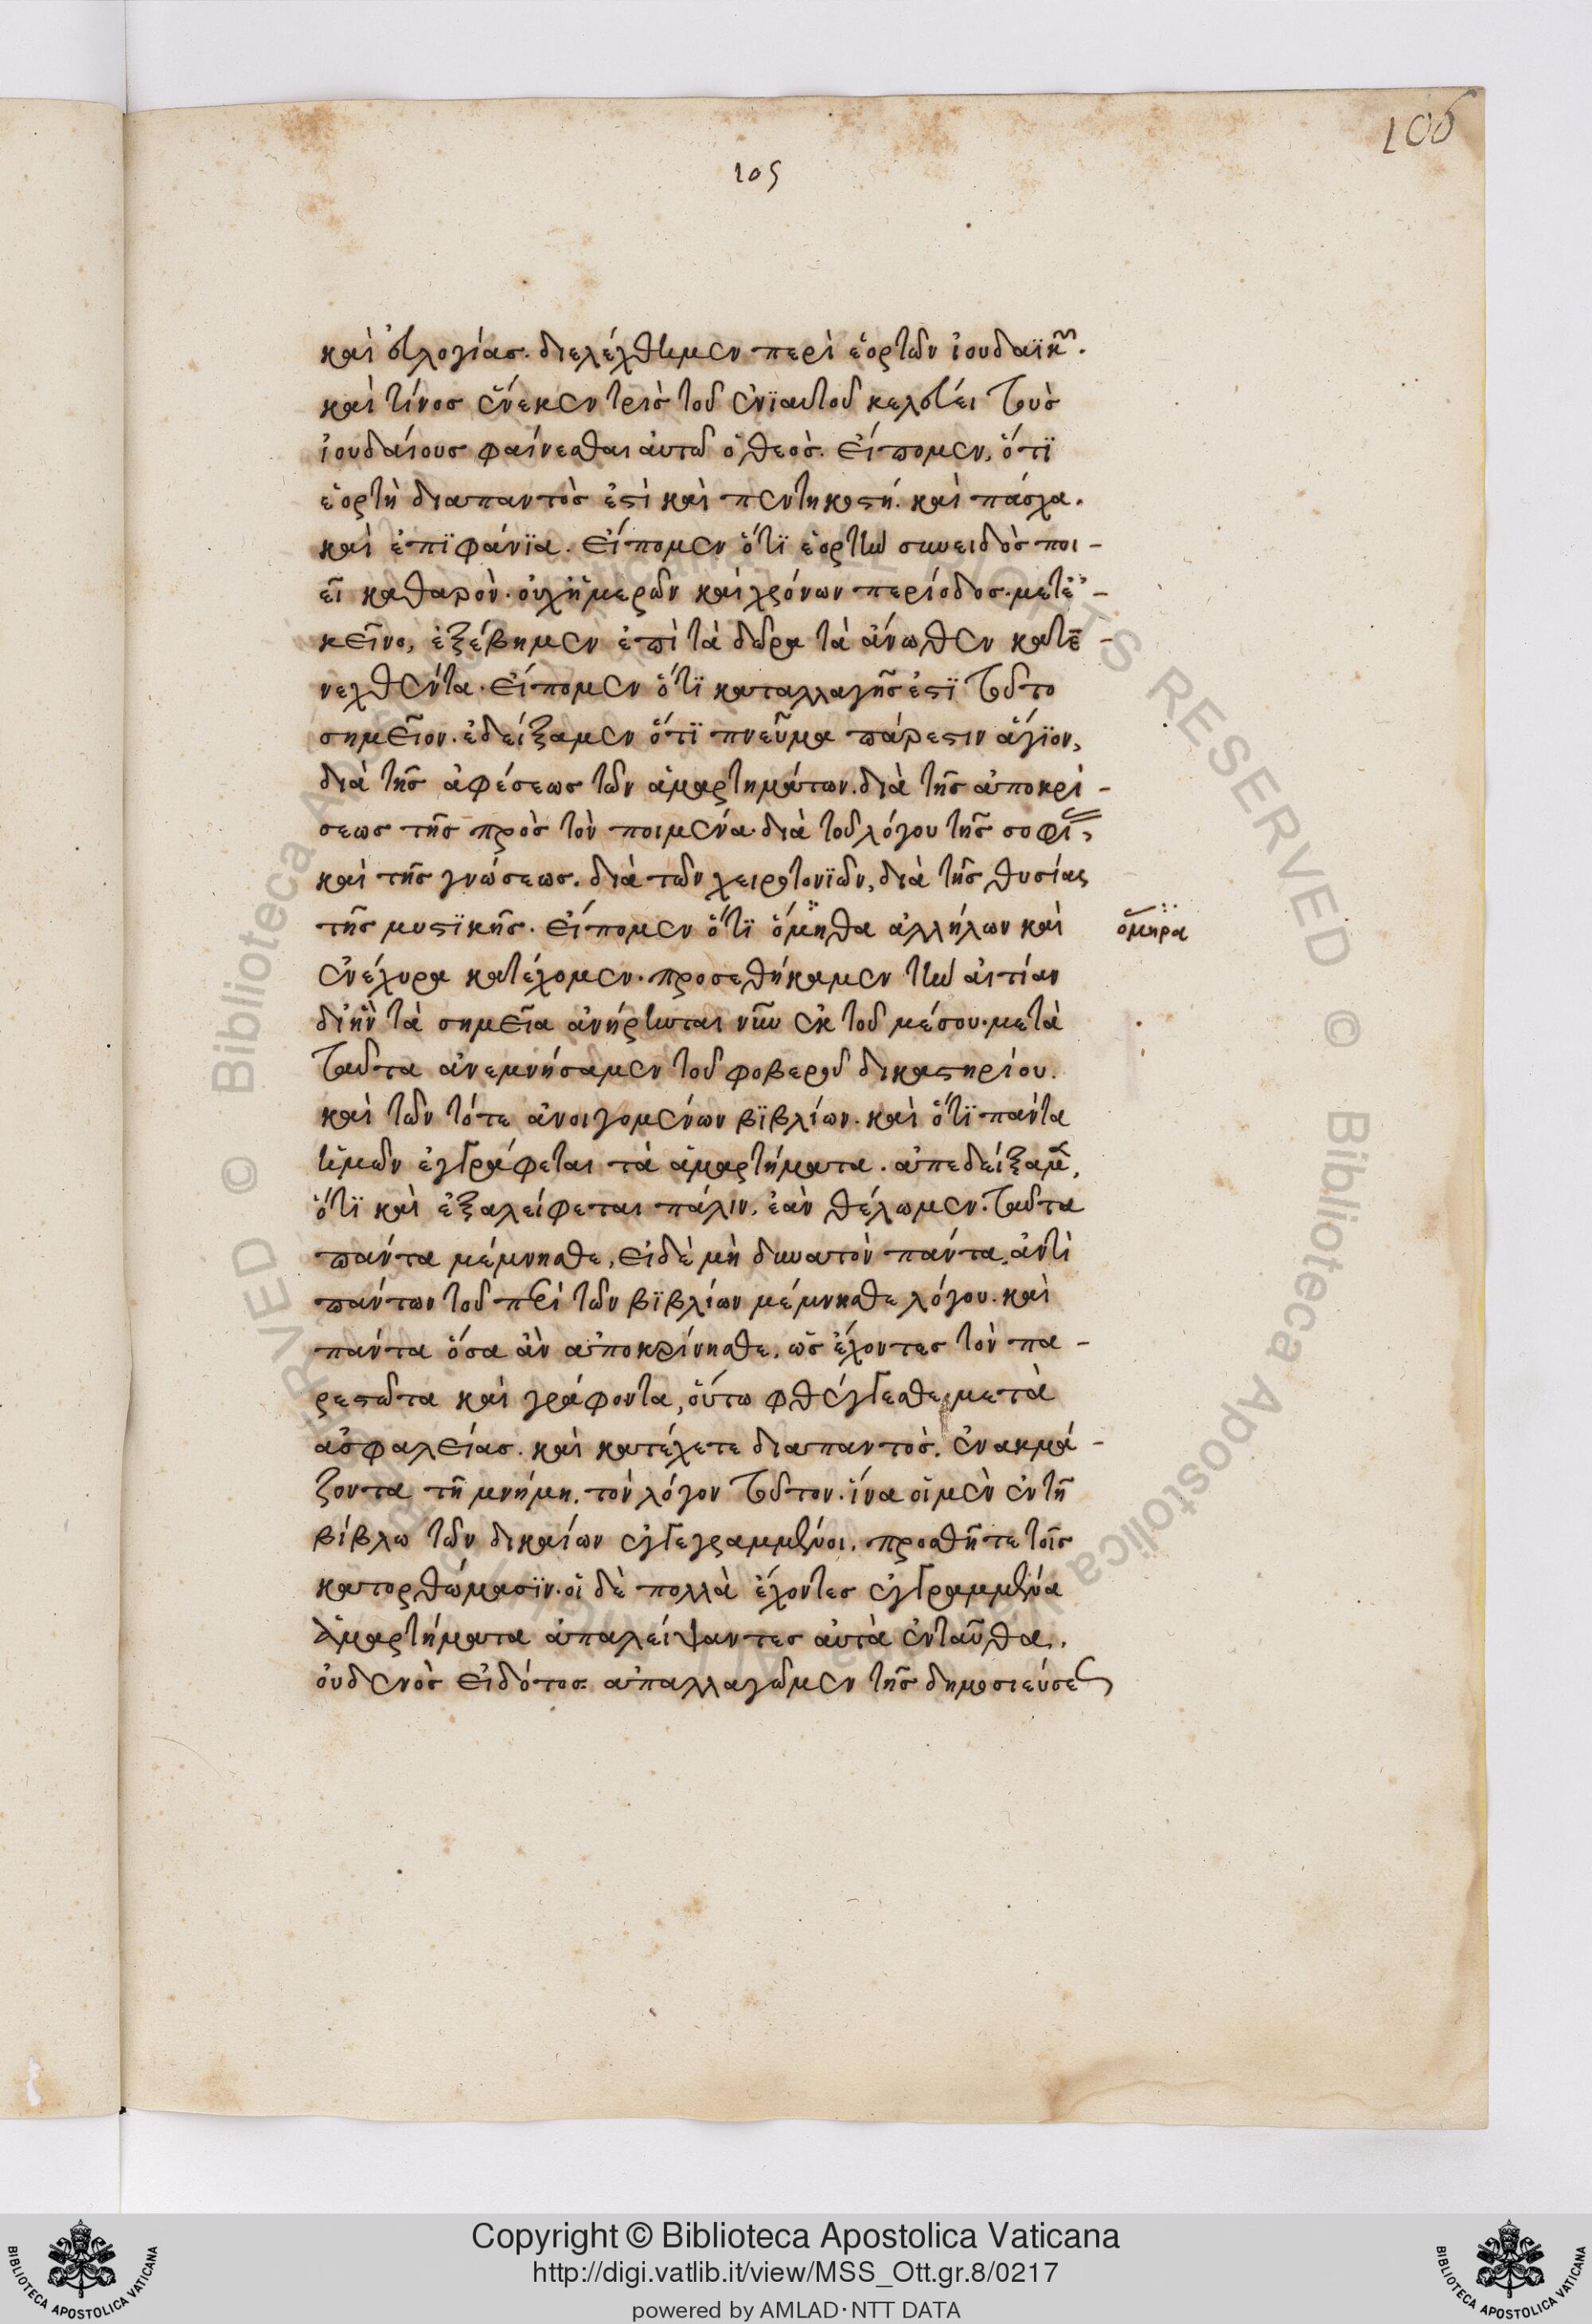 106
105
καὶ εὐλογίας. διελέχθημεν περὶ ἑορτῶν ἰουδαϊκῶν.
καὶ τίνος ἕνεκεν τρὶς τοῦ ἐνϊαυτοῦ κελεύει τοὺς
ἰουδαίους φαίνεσθαι αὐτῶ ὁ θεός. εἴπομεν, ὅτϊ
ἑορτὴ διαπαντὸς ἐστὶ καὶ πεντηκοστή. καὶ πάσχα.
καὶ ἐπϊφάνϊα. εἴπομεν ὅτϊ ἑορτὴν συνειδὸς ποι-
εῖ καθαρὸν. οὐχ ἡμερῶν καὶ χρόνων περίοδος. μετ' ἐ-
κεῖνο, ἐξέβημεν ἐπὶ τὰ δῶρα τὰ ἄνωθεν κατε-
νεχθέντα. εἴπομεν ὅτϊ καταλλαγῆς ἐστϊ τοῦτο
σημεῖον. ἐδείξαμεν ὅτϊ πνεῦμα πάρεστιν ἅγϊον,
διὰ τῆς ἀφέσεως τῶν ἁμαρτημάτων. διὰ τῆς ἀποκρί-
σεως τῆς πρὸς τὸν ποιμένα. διὰ τοῦ λόγου τῆς σοφίας,
καὶ τῆς γνώσεως. διὰ τῶν χειροτονϊῶν, διὰ τῆς θυσίας
τῆς μυστϊκῆς. εἴπομεν ὅτϊ ὅμηθα ἀλλήλων καὶ
ὅμηρα
ἐνέχυρα κατέχομεν. προσεθήκαμεν τὴν αἰτίαν
δι' ἣν τὰ σημεῖα ἀνήρηται νῦν ἐκ τοῦ μέσου. μετὰ
ταῦτα ἀνεμνήσαμεν τοῦ φοβεροῦ δικαστηρίου.
καὶ τῶν τότε ἀνοιγομένων βϊβλίων. καὶ ὅτϊ πάντα
ἡμῶν ἐγγράφεται τὰ ἁμαρτήματα. ἀπεδείξαμεν,
ὅτϊ καὶ ἐξαλείφεται πάλιν, ἐὰν θέλωμεν. ταῦτα
πάντα μέμνησθε, εἰ δὲ μὴ δυνατὸν πάντα, ἀντὶ
πάντων τοῦ περὶ τῶν βϊβλίων μέμνησθε λόγου. καὶ
πάντα ὅσα ἂν ἀποκρίνησθε, ὡς ἔχοντες τὸν πα-
ρεστῶτα καὶ γράφοντα, οὕτω φθέγγεσθε μετὰ
ἀσφαλείας. καὶ κατέχετε διαπαντὸς, ἐνακμά-
ζοντα τῆ μνήμη, τὸν λόγον τοῦτον. ἵνα οἱ μὲν ἐν τῆ
βίβλω τῶν δικαίων ἐγγεγραμμένοι, προσθῆτε τοῖς
κατορθώμασϊν. οἱ δὲ πολλὰ ἔχοντες ἐγγραμμένα
ἁμαρτήματα ἀπαλείψαντες αὐτὰ ἐνταῦθα,
οὐδενὸς εἰδότος ἀπαλλαγῶμεν τῆς δημοσιεύσεως
Copyright © Biblioteca Apostolica Vaticana
http://digi.vatlib.it/view/MSS_Ott.gr.8/0217
powered by AMLAD·NTT DATA